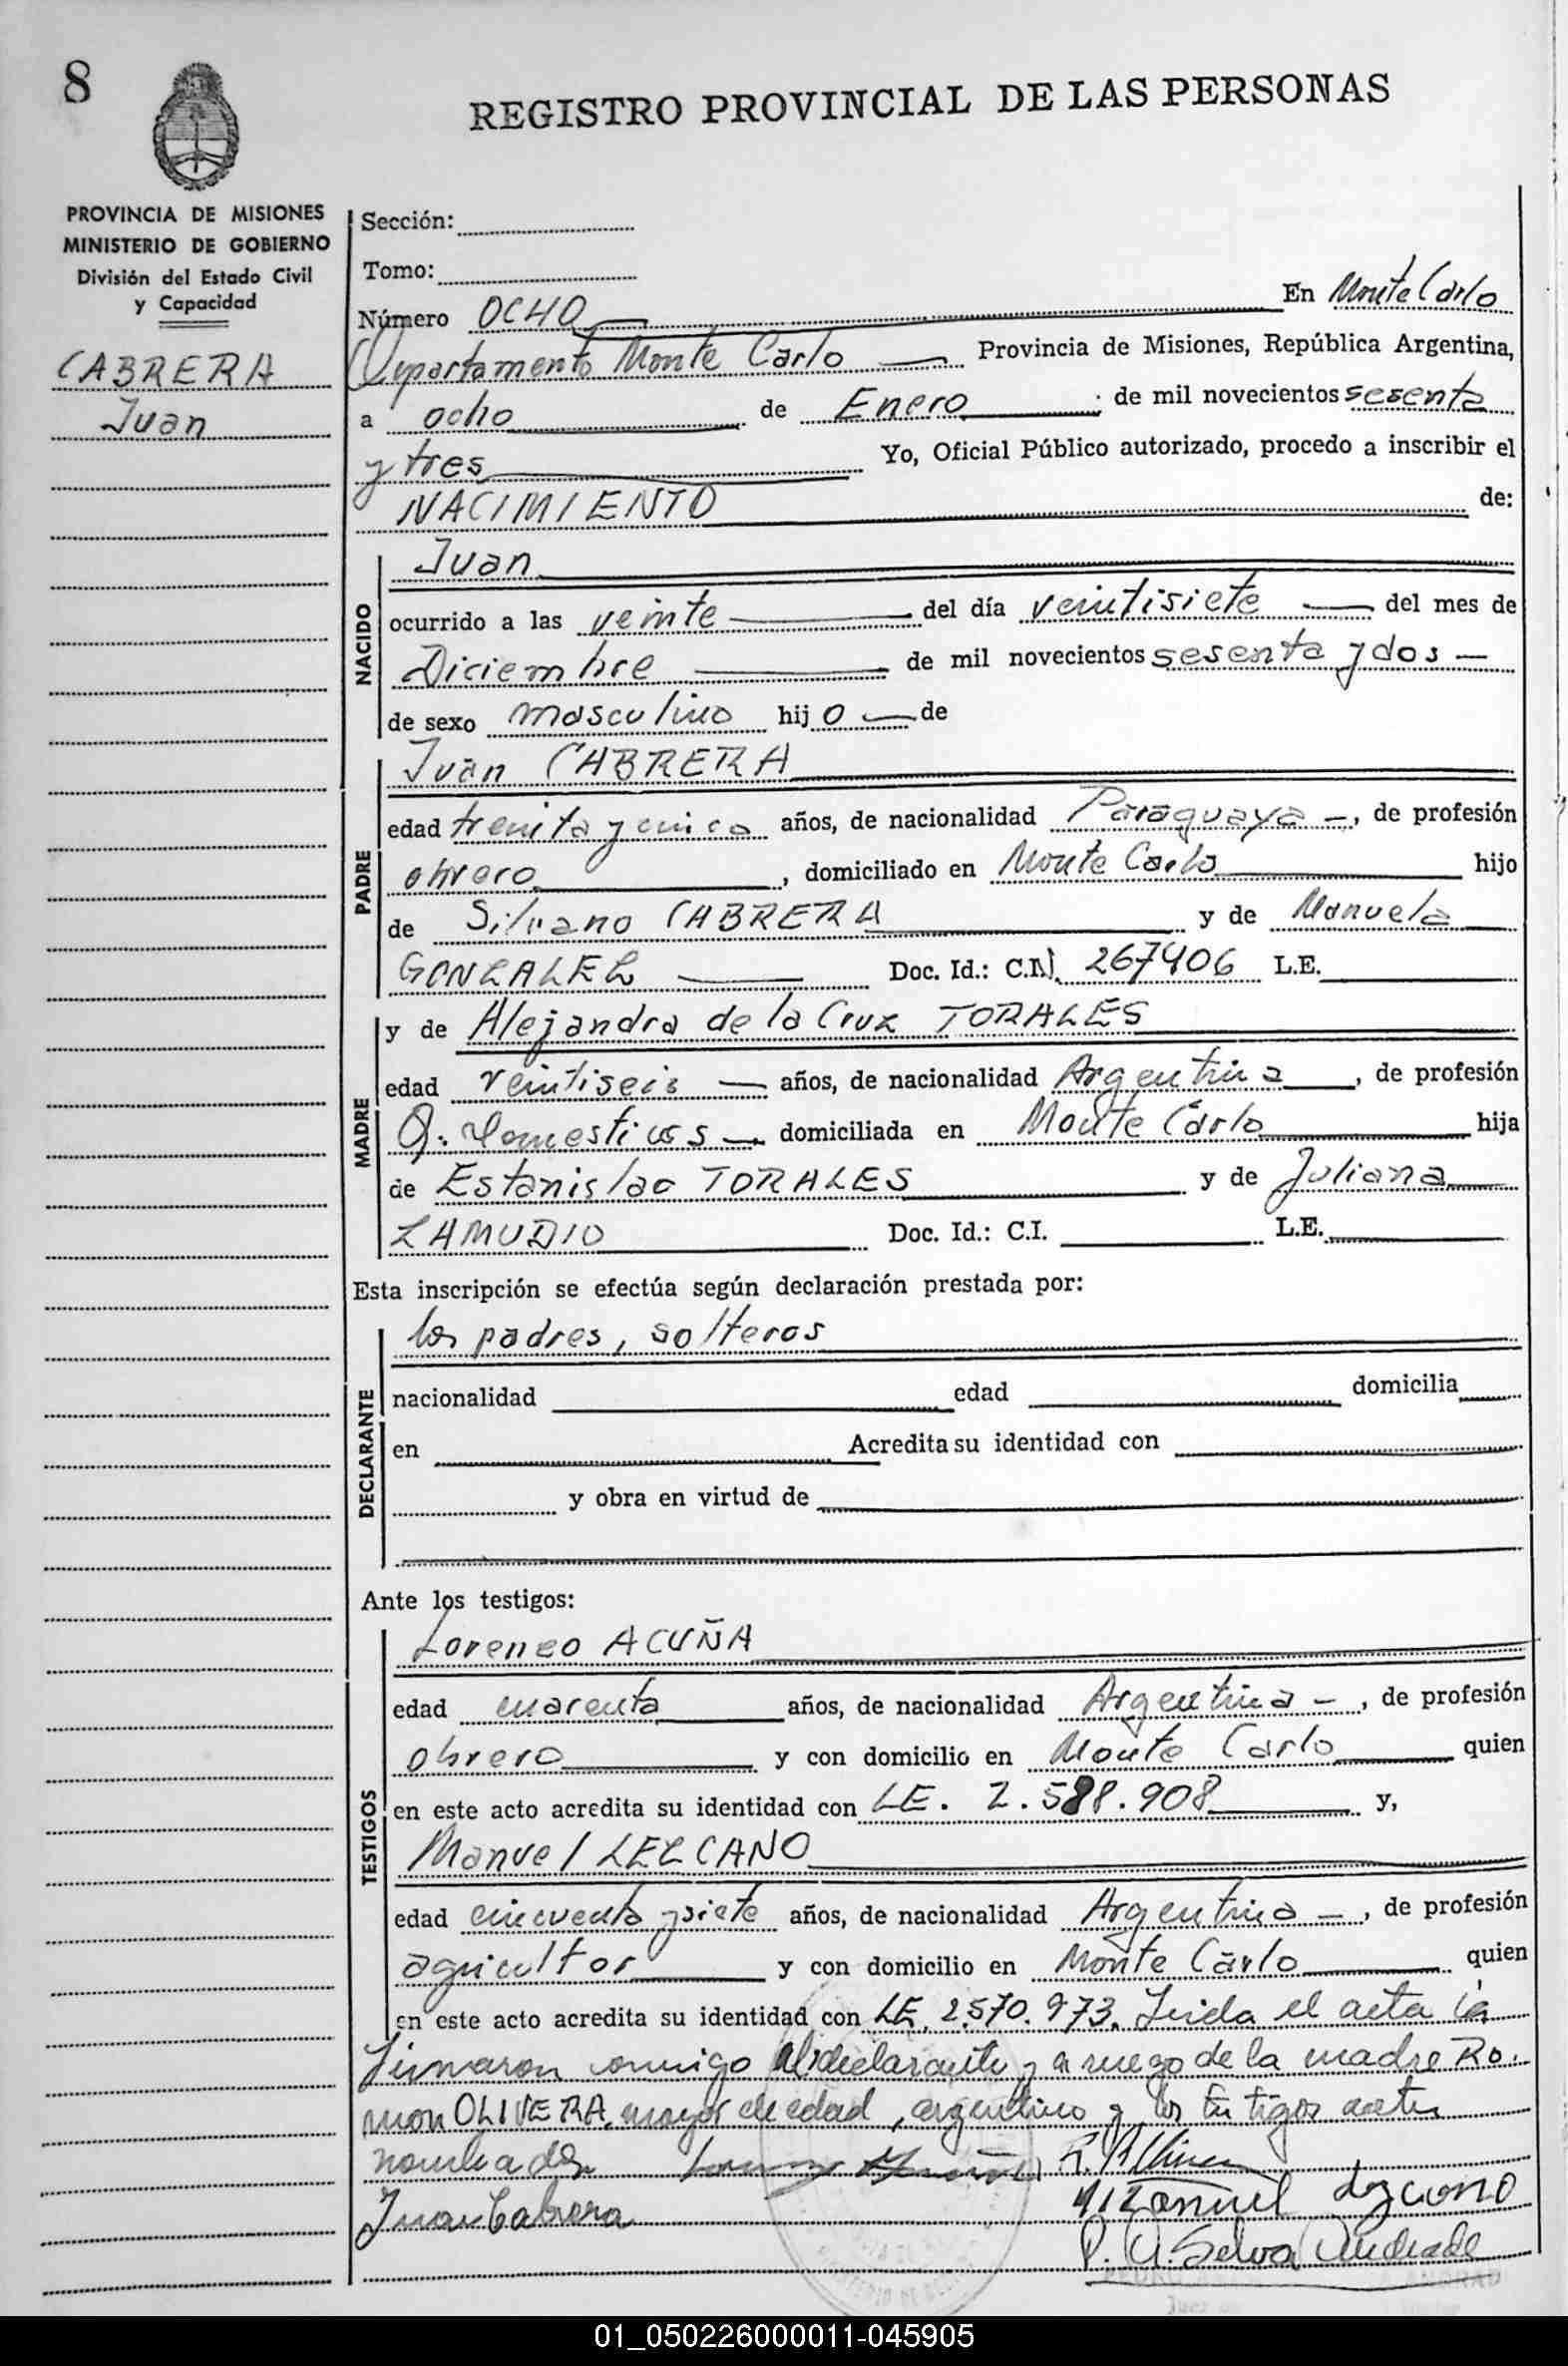 8
REGISTRO PROVINCIAL DE LAS PERSONAS
PROVINCIA DE MISIONES
MINISTERIO DE GOBIERNO
División del Estado Civil
y Capacidad
CABRERA
Juan
Sección:
Tomo:
Número OCHO En Monte Carlo
Departamento Monte Carlo Provincia de Misiones, República Argentina,
a ocho de Enero de mil novecientos sesenta
y tres Yo, Oficial Público autorizado, procedo a inscribir el
NACIMIENTO de:
NACIDO
Juan
ocurrido a las veinte del día veintisiete del mes de
Diciembre de mil novecientos sesenta y dos
de sexo masculino hijo de
PADRE
Juan CABRERA
edad treinta y cinco años, de nacionalidad Paraguaya, de profesión
obrero, domiciliado en Monte Carlo hijo
de Silvano CABRERA y de Manuela
GONZALEZ Doc. Id.: C.I. 267406 L.E.
MADRE
y de Alejandra de la Cruz TORALES
edad veintiseis años, de nacionalidad Argentina, de profesión
Q. Domesticos domiciliada en Monte Carlo hija
de Estanislao TORALES y de Juliana
ZAMUDIO Doc. Id.: C.I. L.E.
Esta inscripción se efectúa según declaración prestada por:
DECLARANTE
los padres, solteros
nacionalidad edad domicilia
en Acredita su identidad con
y obra en virtud de
Ante los testigos:
TESTIGOS
Lorenzo ACUÑA
edad cuarenta años, de nacionalidad Argentina, de profesión
obrero y con domicilio en Monte Carlo quien
en este acto acredita su identidad con LE. 2.588.908 y,
Manuel LEZCANO
edad cincuenta y siete años, de nacionalidad Argentina, de profesión
agricultor y con domicilio en Monte Carlo quien
en este acto acredita su identidad con LE. 2.570.973. Leida el acta la
firmaron conmigo el declarante y a ruego de la madre Ra-
mon OLIVERA, mayor de edad, argentino y los testigos antes
nombrados
Juan Cabrera
Manuel Lezcano
P. A. Selva Andrade
01_050226000011-045905